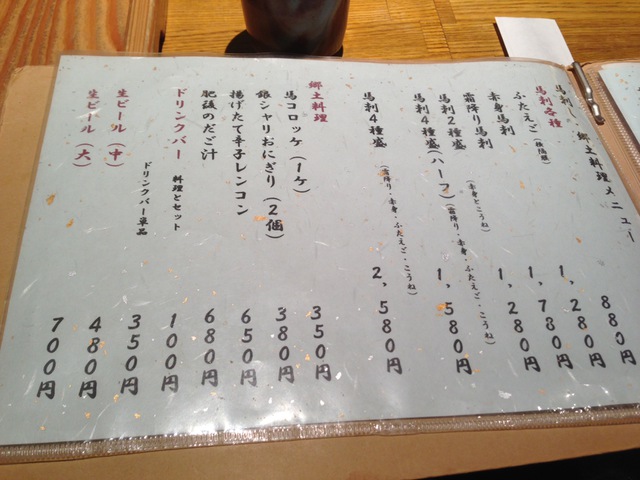 馬刺し・郷土料理メニュー
馬刺各種
ふたえご 880円
赤身馬刺 1,280円
霜降り馬刺 1,780円
馬刺2種盛(赤身とこうね) 1,280円
馬刺4種盛(ハーフ)(霜降り・赤身・ふたえご・こうね) 1,580円
馬刺4種盛 (霜降り・赤身・ふたえご・こうね) 2,580円
郷土料理
馬コロッケ(1ケ) 350円
銀シャリおにぎり(2個) 380円
揚げたて辛子レンコン 650円
肥後のだご汁 680円
ドリンクバー 料理とセット 100円
ドリンクバー単品 350円
生ビール(中) 480円
生ビール(大) 700円